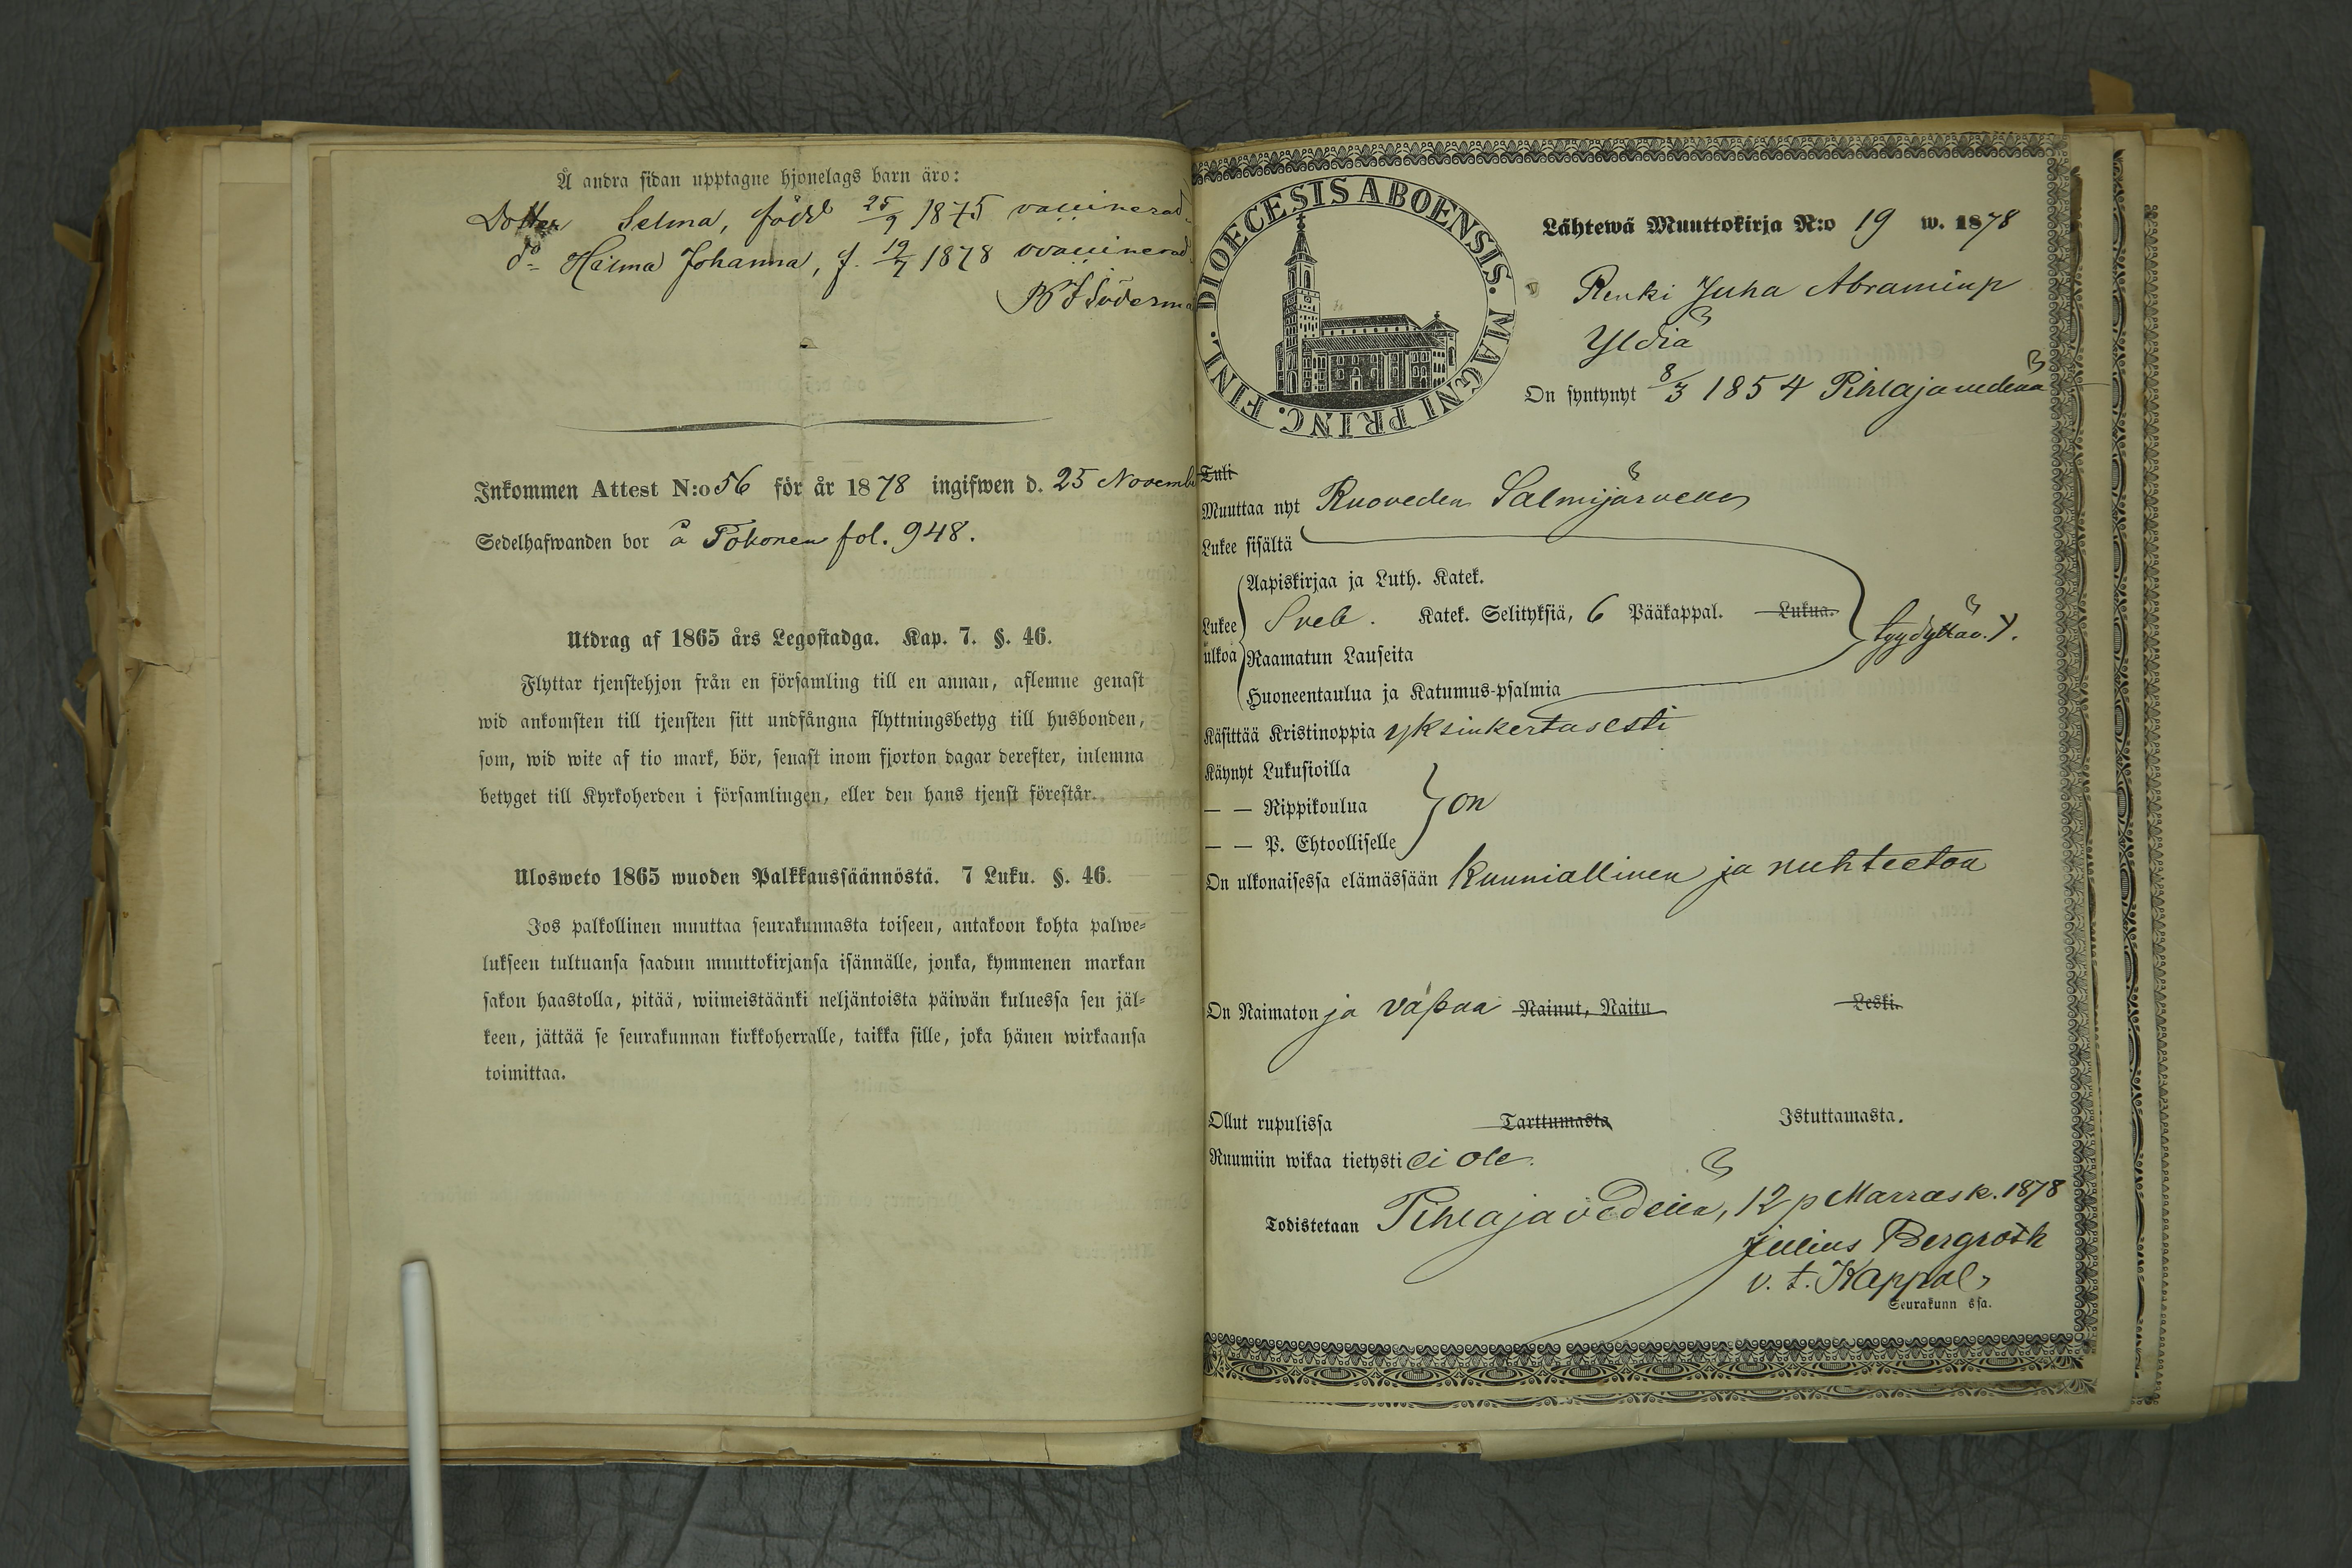 Å andra sidan upptagne hjonelags barn äro:
Dotter Selma, född 25/9 1875 vaccinerad
d:o Halma Johanna, f. 19/7 1878 ovaccinerad
Inkommen Attest N:o 56 för år 1878 ingifwen d. 25 Novemb
Sedelhafwanden bor å Tokonen fol. 948.
Utdrag af 1865 års Legostadga. Kap. 7. §. 46.
Flyttar tjenstehjon från en församling till en annan, aflemne genast
wid ankomsten till tjensten sitt undfångna flyttningsbetyg till husbonden,
som, wid wite af tio mark, bör, senast inom fjorton dagar derefter, inlemna
betyget till Kyrkoherden i församlingen, eller den hans tjenst förestår.
Ulosweto 1865 wuoden Palkkaussäännöstä. 7 Luku. §. 46.
Jos palkollinen muuttaa seurakunnasta toiseen, antakoon kohta palwe-
lukseen tultuansa saadun muuttokirjansa isännälle, jonka, kymmenen markan
sakon haastolla, pitää, wiimeistäänki neljäntoista päiwän kuluessa sen jäl-
keen, jättää se seurakunnan kirkkoherralle, taikka sille, joka hänen wirkaansa
toimittaa.
DIOECESIS ABOENSIS. MAGNI PRINC. FINL.
Lähtewä Muuttokirja N:o 19 w. 1878
Renki Juha Abraminp
Yldiä
On syntynyt 8/3 1854 Pihlajavedellä
Tuli
Muuttaa nyt Ruoveden Salmijärvelle
Lukee sisältä
Aapiskirjaa ja Luth. Katek.
Lukee ulkoa Sveb. Katek. Selityksiä, 6 Pääkappal. Lukua. tyydyttäv.
Raamatun Lauseita
Huoneentaulua ja Katumus-psalmia
Käsittää Kristinoppia yksinkertasesti
Käynyt Lukusioilla
— — Rippikoulua on
— — P. Ehtoolliselle
On ulkonaisessa elämässään kunniallinen ja nuhteeton
On Naimaton ja vapaa Nainut, Naitu Leski.
Ollut rupulissa Tarttumasta Istuttamasta.
Ruumiin wikaa tietysti ei ole.
Todistetaan Pihlajavedellä, 12 p Marrask. 1878
Julius Bergroth
v. t. Kappal.
Seurakunn ssa.